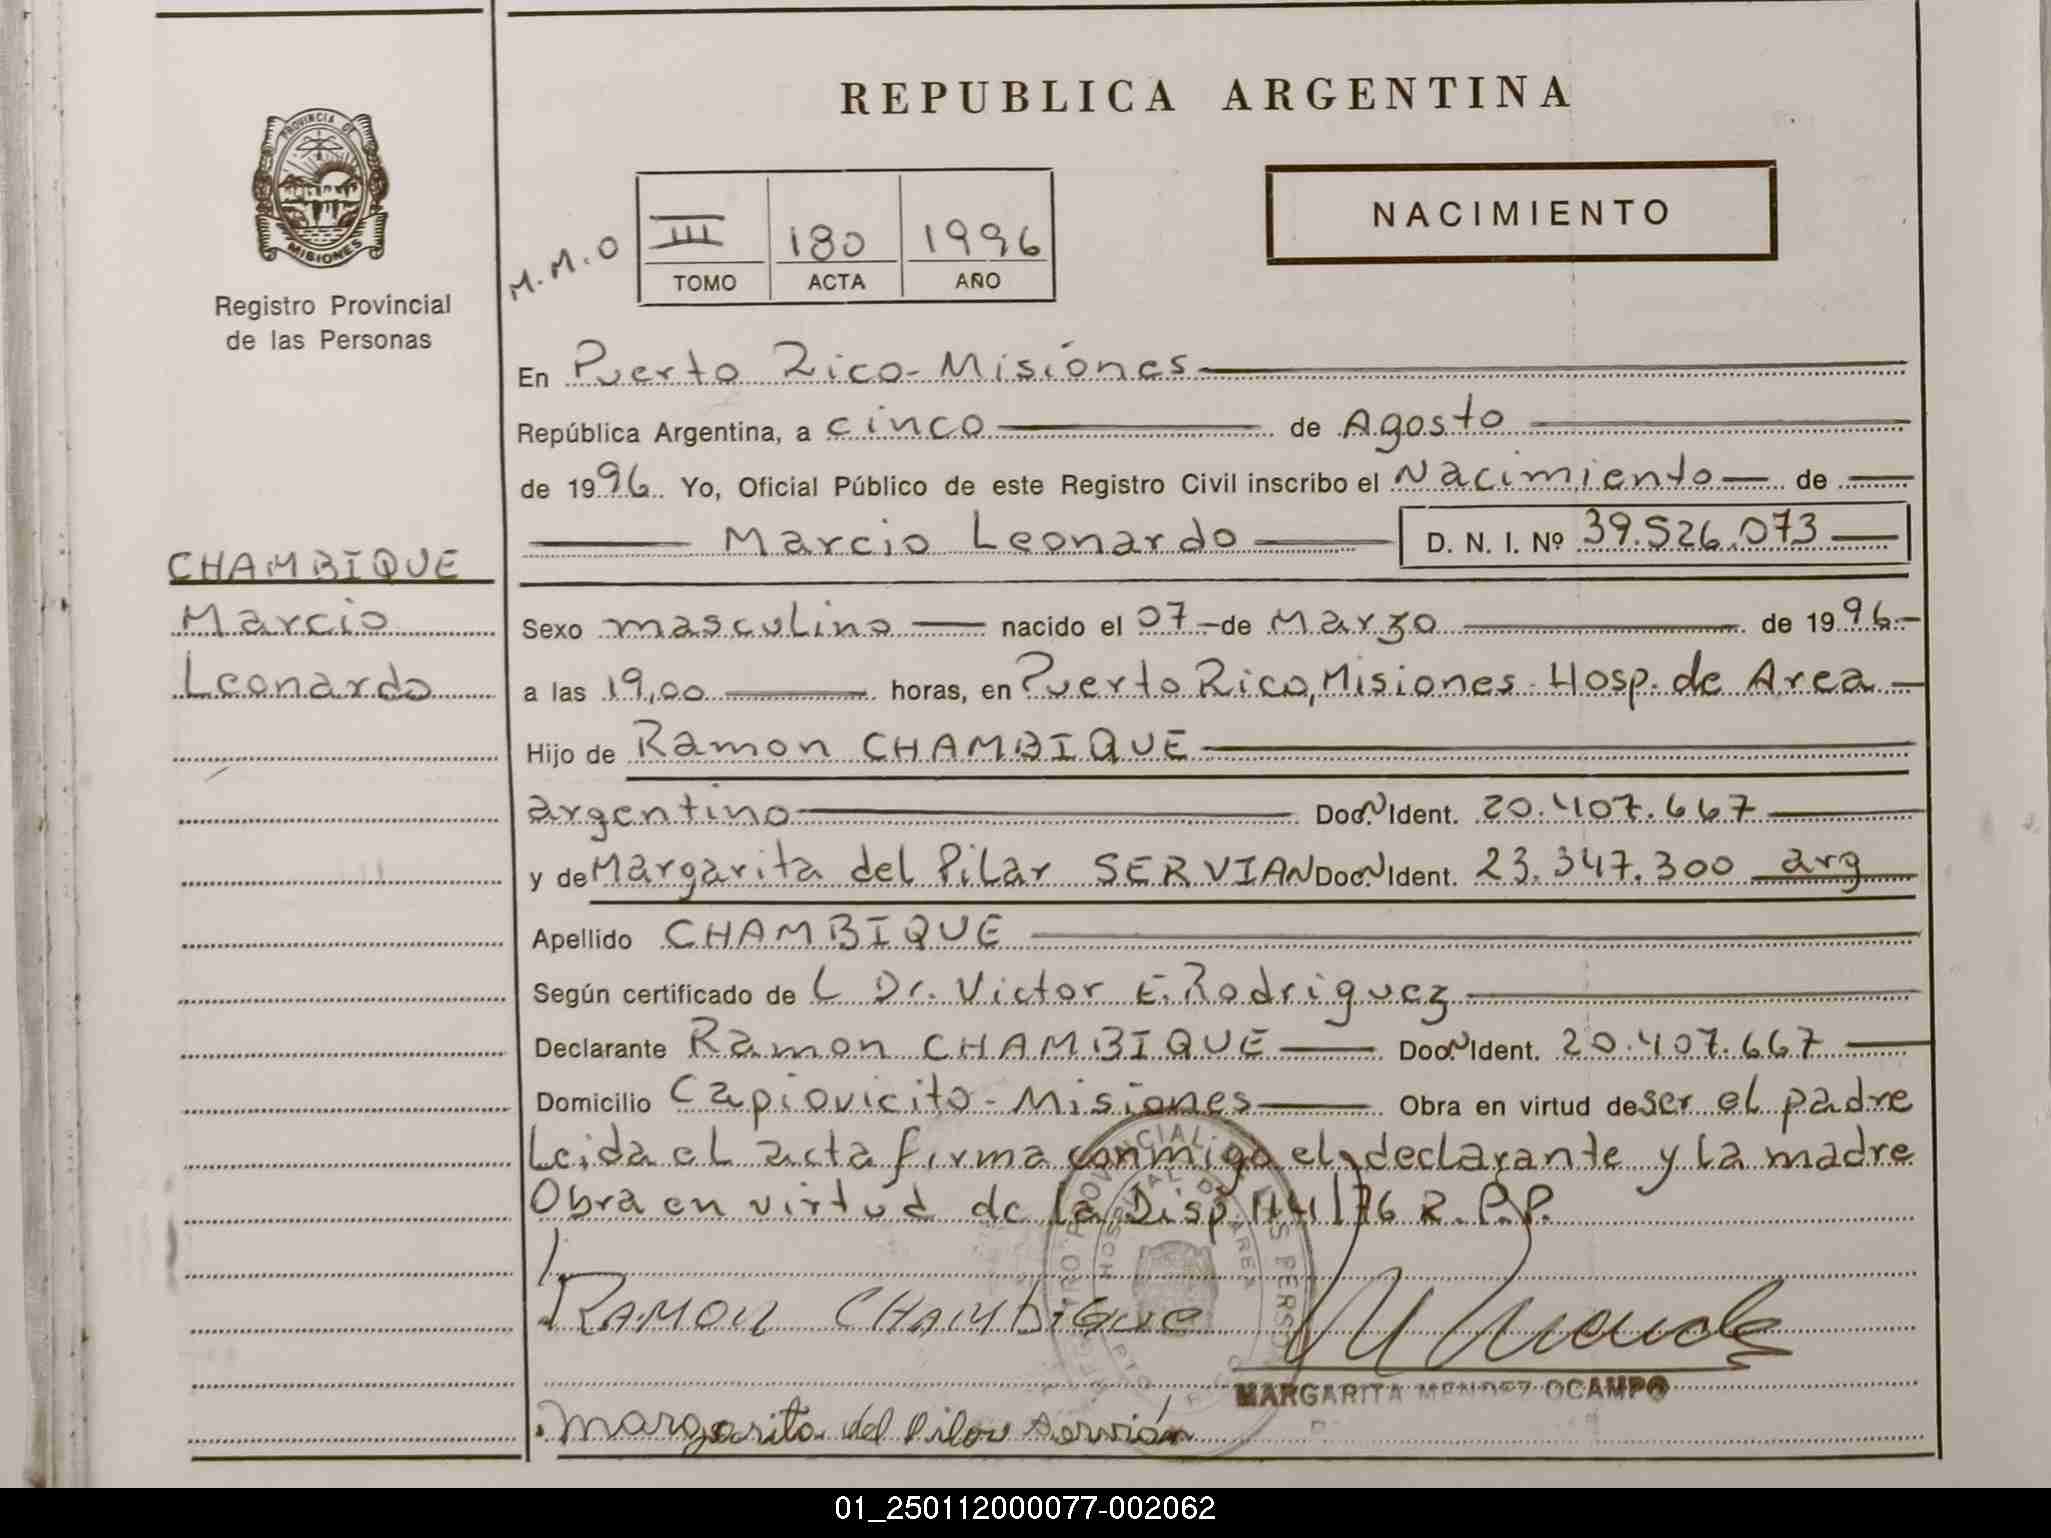 REPUBLICA ARGENTINA
PROVINCIA DE
MISIONES
Registro Provincial
de las Personas
M.M.O
III 180 1996
TOMO ACTA AÑO
NACIMIENTO
En Puerto Rico-Misiones
República Argentina, a cinco de Agosto
de 1996. Yo, Oficial Público de este Registro Civil inscribo el Nacimiento de
Marcio Leonardo D. N. I. Nº 39.526.073
CHAMBIQUE
Marcio
Leonardo
Sexo masculino nacido el 07 de Marzo de 1996.
a las 19,00 horas, en Puerto Rico, Misiones-Hosp. de Area
Hijo de Ramon CHAMBIQUE
argentino Doc. Ident. 20.407.667
y de Margarita del Pilar SERVIAN Doc. Ident. 23.347.300 arg
Apellido CHAMBIQUE
Según certificado de L Dr. Victor E. Rodriguez
Declarante Ramon CHAMBIQUE Doc. Ident. 20.407.667
Domicilio Capiovicito-Misiones Obra en virtud de ser el padre
Leida el acta firma conmigo el declarante y la madre
Obra en virtud de la Disp. 114/76 R.P.P.
RAMON CHAMBIQUE
MARGARITA MENDEZ OCAMPO
Margarita del Pilar Servián
01_250112000077-002062